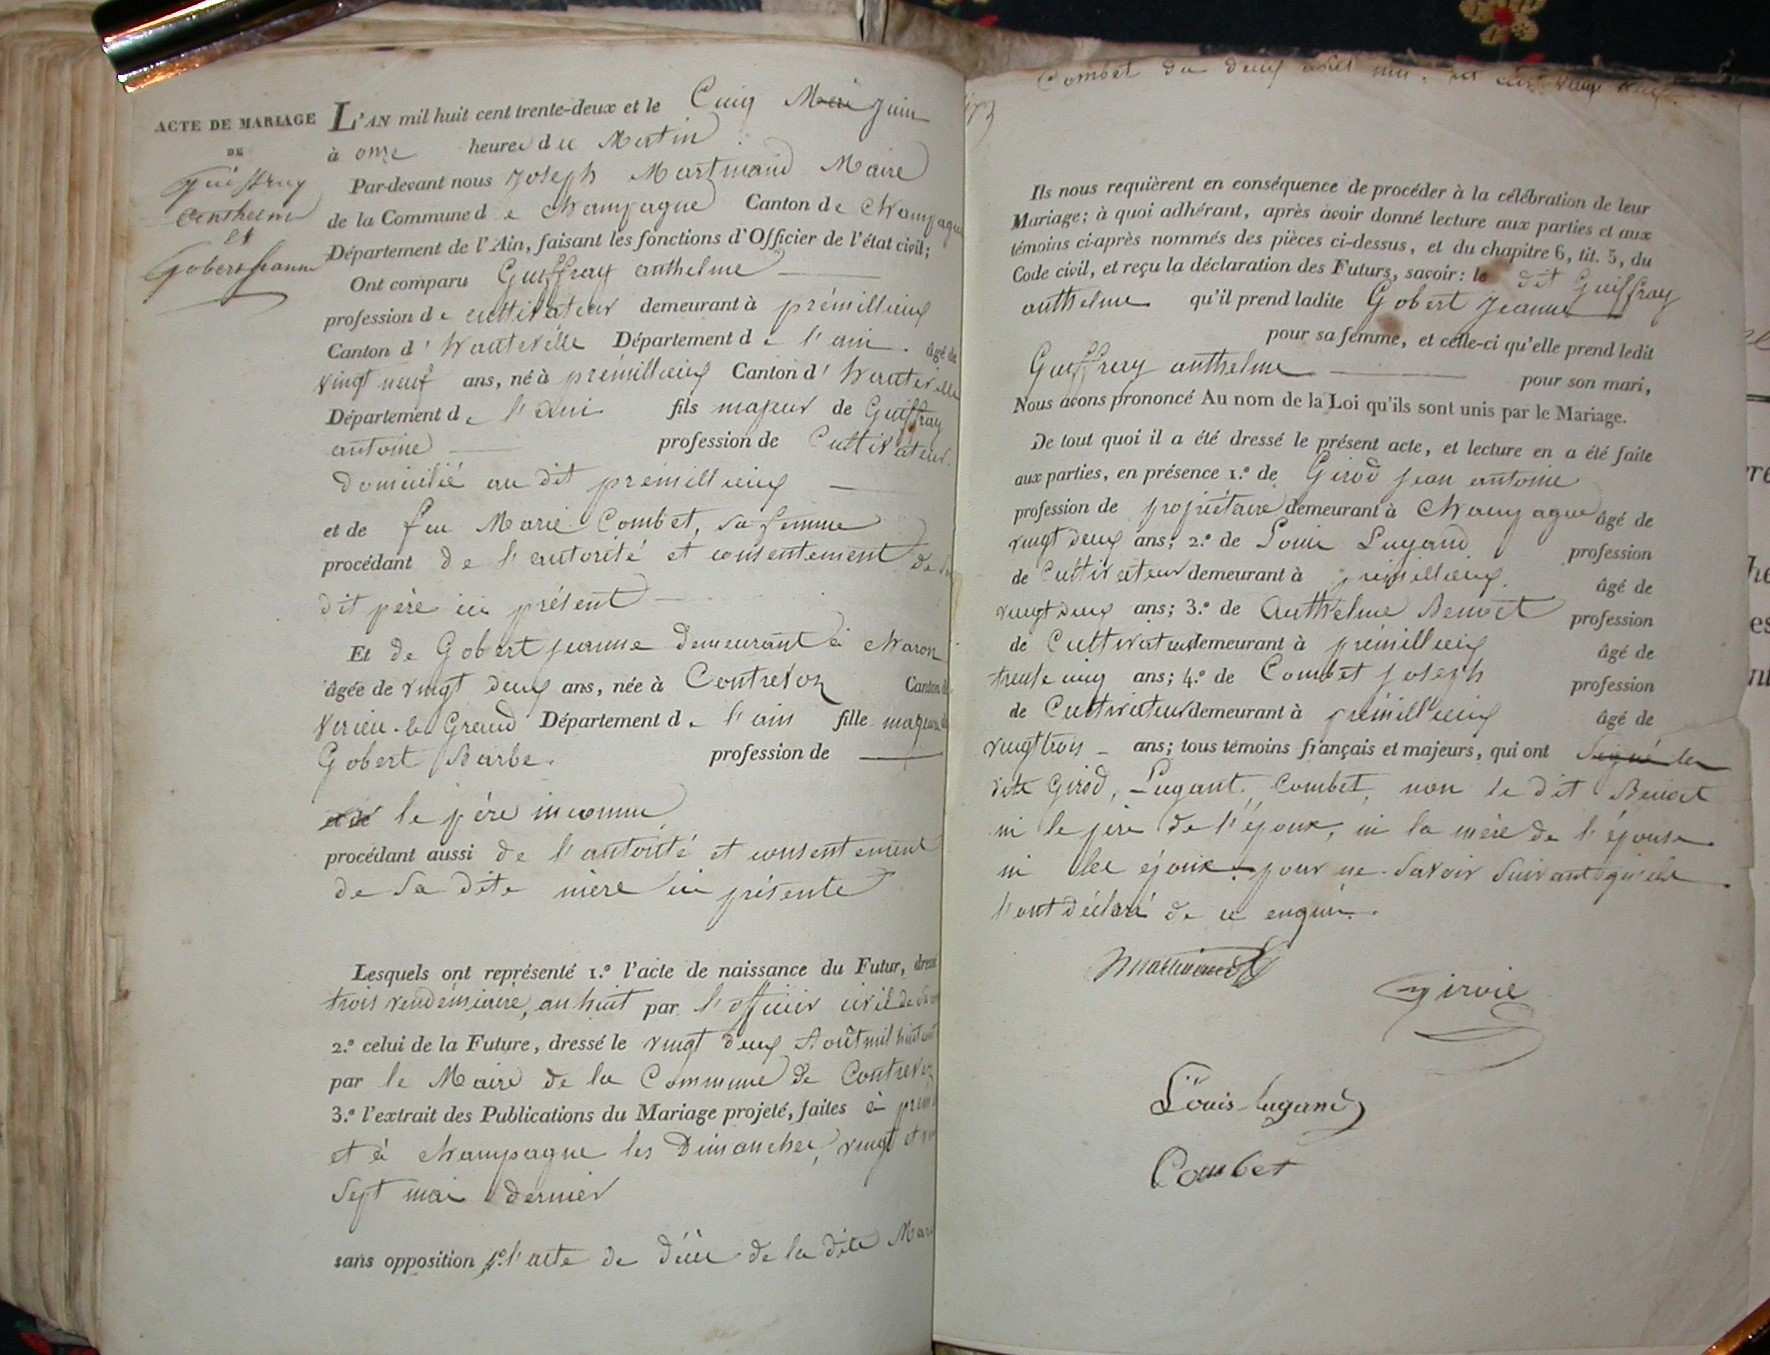 ACTE DE MARIAGE
DE
Guiffray
Anthelme
et
Gobert Jeanne
L'AN mil huit cent trente-deux et le Cinq Juin
à onze heures du Matin
Par-devant nous Joseph Martinand Maire
de la Commune de Champagne Canton de Champagne
Département de l'Ain, faisant les fonctions d'Officier de l'état civil;
Ont comparu Guiffray anthelme
profession de cultivateur demeurant à prémillieux
Canton d'hauteville Département de l'ain. âgé de
vingt neuf ans, né à prémillieux Canton d'hauteville
Département de l'ain fils majeur de Guiffray
antoine profession de Cultivateur.
domicilié au dit prémillieux
et de feu Marie Combet, sa femme
procédant de l'autorité et consentement de
dit père ici présent
Et de Gobert jeanne demeurant à
âgée de vingt deux ans, née à Contrevoz Canton de
Virieu-le Grand Département de l'ain fille majeure
Gobert Barbe. profession de
et de le père inconnu
procédant aussi de l'autorité et consentement
de sa dite mère ici présente
Lesquels ont représenté 1.º l'acte de naissance du Futur, dressé
trois vendémiaire, an huit par l'officier civil de
2.º celui de la Future, dressé le vingt deux Août mil huit cent
par le Maire de la Commune de Contrevoz
3.º l'extrait des Publications du Mariage projeté, faites à
et à Champagne les Dimanches, vingt et
sept mai dernier
sans opposition 4º l'acte de décès de la dite Marie
Combet du deux
Ils nous requièrent en conséquence de procéder à la célébration de leur
Mariage; à quoi adhérant, après avoir donné lecture aux parties et aux
témoins ci-après nommés des pièces ci-dessus, et du chapitre 6, tit. 5, du
Code civil, et reçu la déclaration des Futurs, savoir: le dit Guiffray
anthelme qu'il prend ladite Gobert Jeanne
pour sa femme, et celle-ci qu'elle prend ledit
Guiffray anthelme pour son mari,
Nous avons prononcé Au nom de la Loi qu'ils sont unis par le Mariage.
De tout quoi il a été dressé le présent acte, et lecture en a été faite
aux parties, en présence 1.º de Girod jean antoine
profession de propriétaire demeurant à Champagne âgé de
vingt deux ans; 2.º de Louis Lugand profession
de Cultivateur demeurant à prémillieux. âgé de
vingt deux ans; 3.º de Anthelme Benoet profession
de Cultivateur demeurant à prémillieux âgé de
trente cinq ans; 4.º de Combet joseph profession
de Cultivateur demeurant à prémillieux âgé de
vingt trois ans; tous témoins français et majeurs, qui ont signé les
dits Girod, Lugant, Combet, non le dit Benoet
ni le père de l'époux, ni la mère de l'épouse
ni les époux pour ne savoir suivant qu'ils
l'ont déclaré de ce enquis.
Martinand
Girod
Louis lugand
Combet